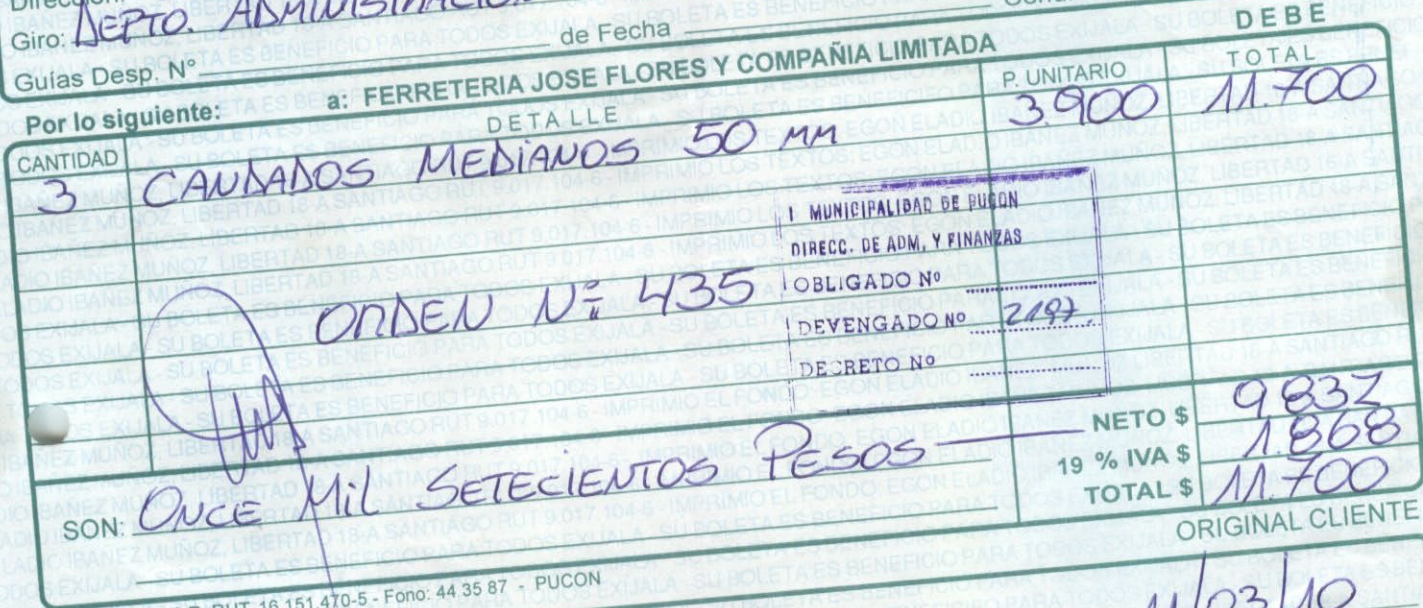 Giro: DEPTO ADMINISTRACION
Guías Desp. N° de Fecha
Por lo siguiente: a: FERRETERIA JOSE FLORES Y COMPAÑIA LIMITADA DEBE
CANTIDAD DETALLE P. UNITARIO TOTAL
3 CANDADOS MEDIANOS 50 MM 3.900 11.700
I MUNICIPALIDAD DE PUCON
DIRECC. DE ADM, Y FINANZAS
ORDEN Nº 435
OBLIGADO Nº
DEVENGADO Nº 2197
DECRETO Nº
NETO $ 9.832
19 % IVA $ 1.868
SON: ONCE Mil SETECIENTOS PESOS TOTAL $ 11.700
ORIGINAL CLIENTE
RUT 16.151.470-5 - Fono: 44 35 87 - PUCON